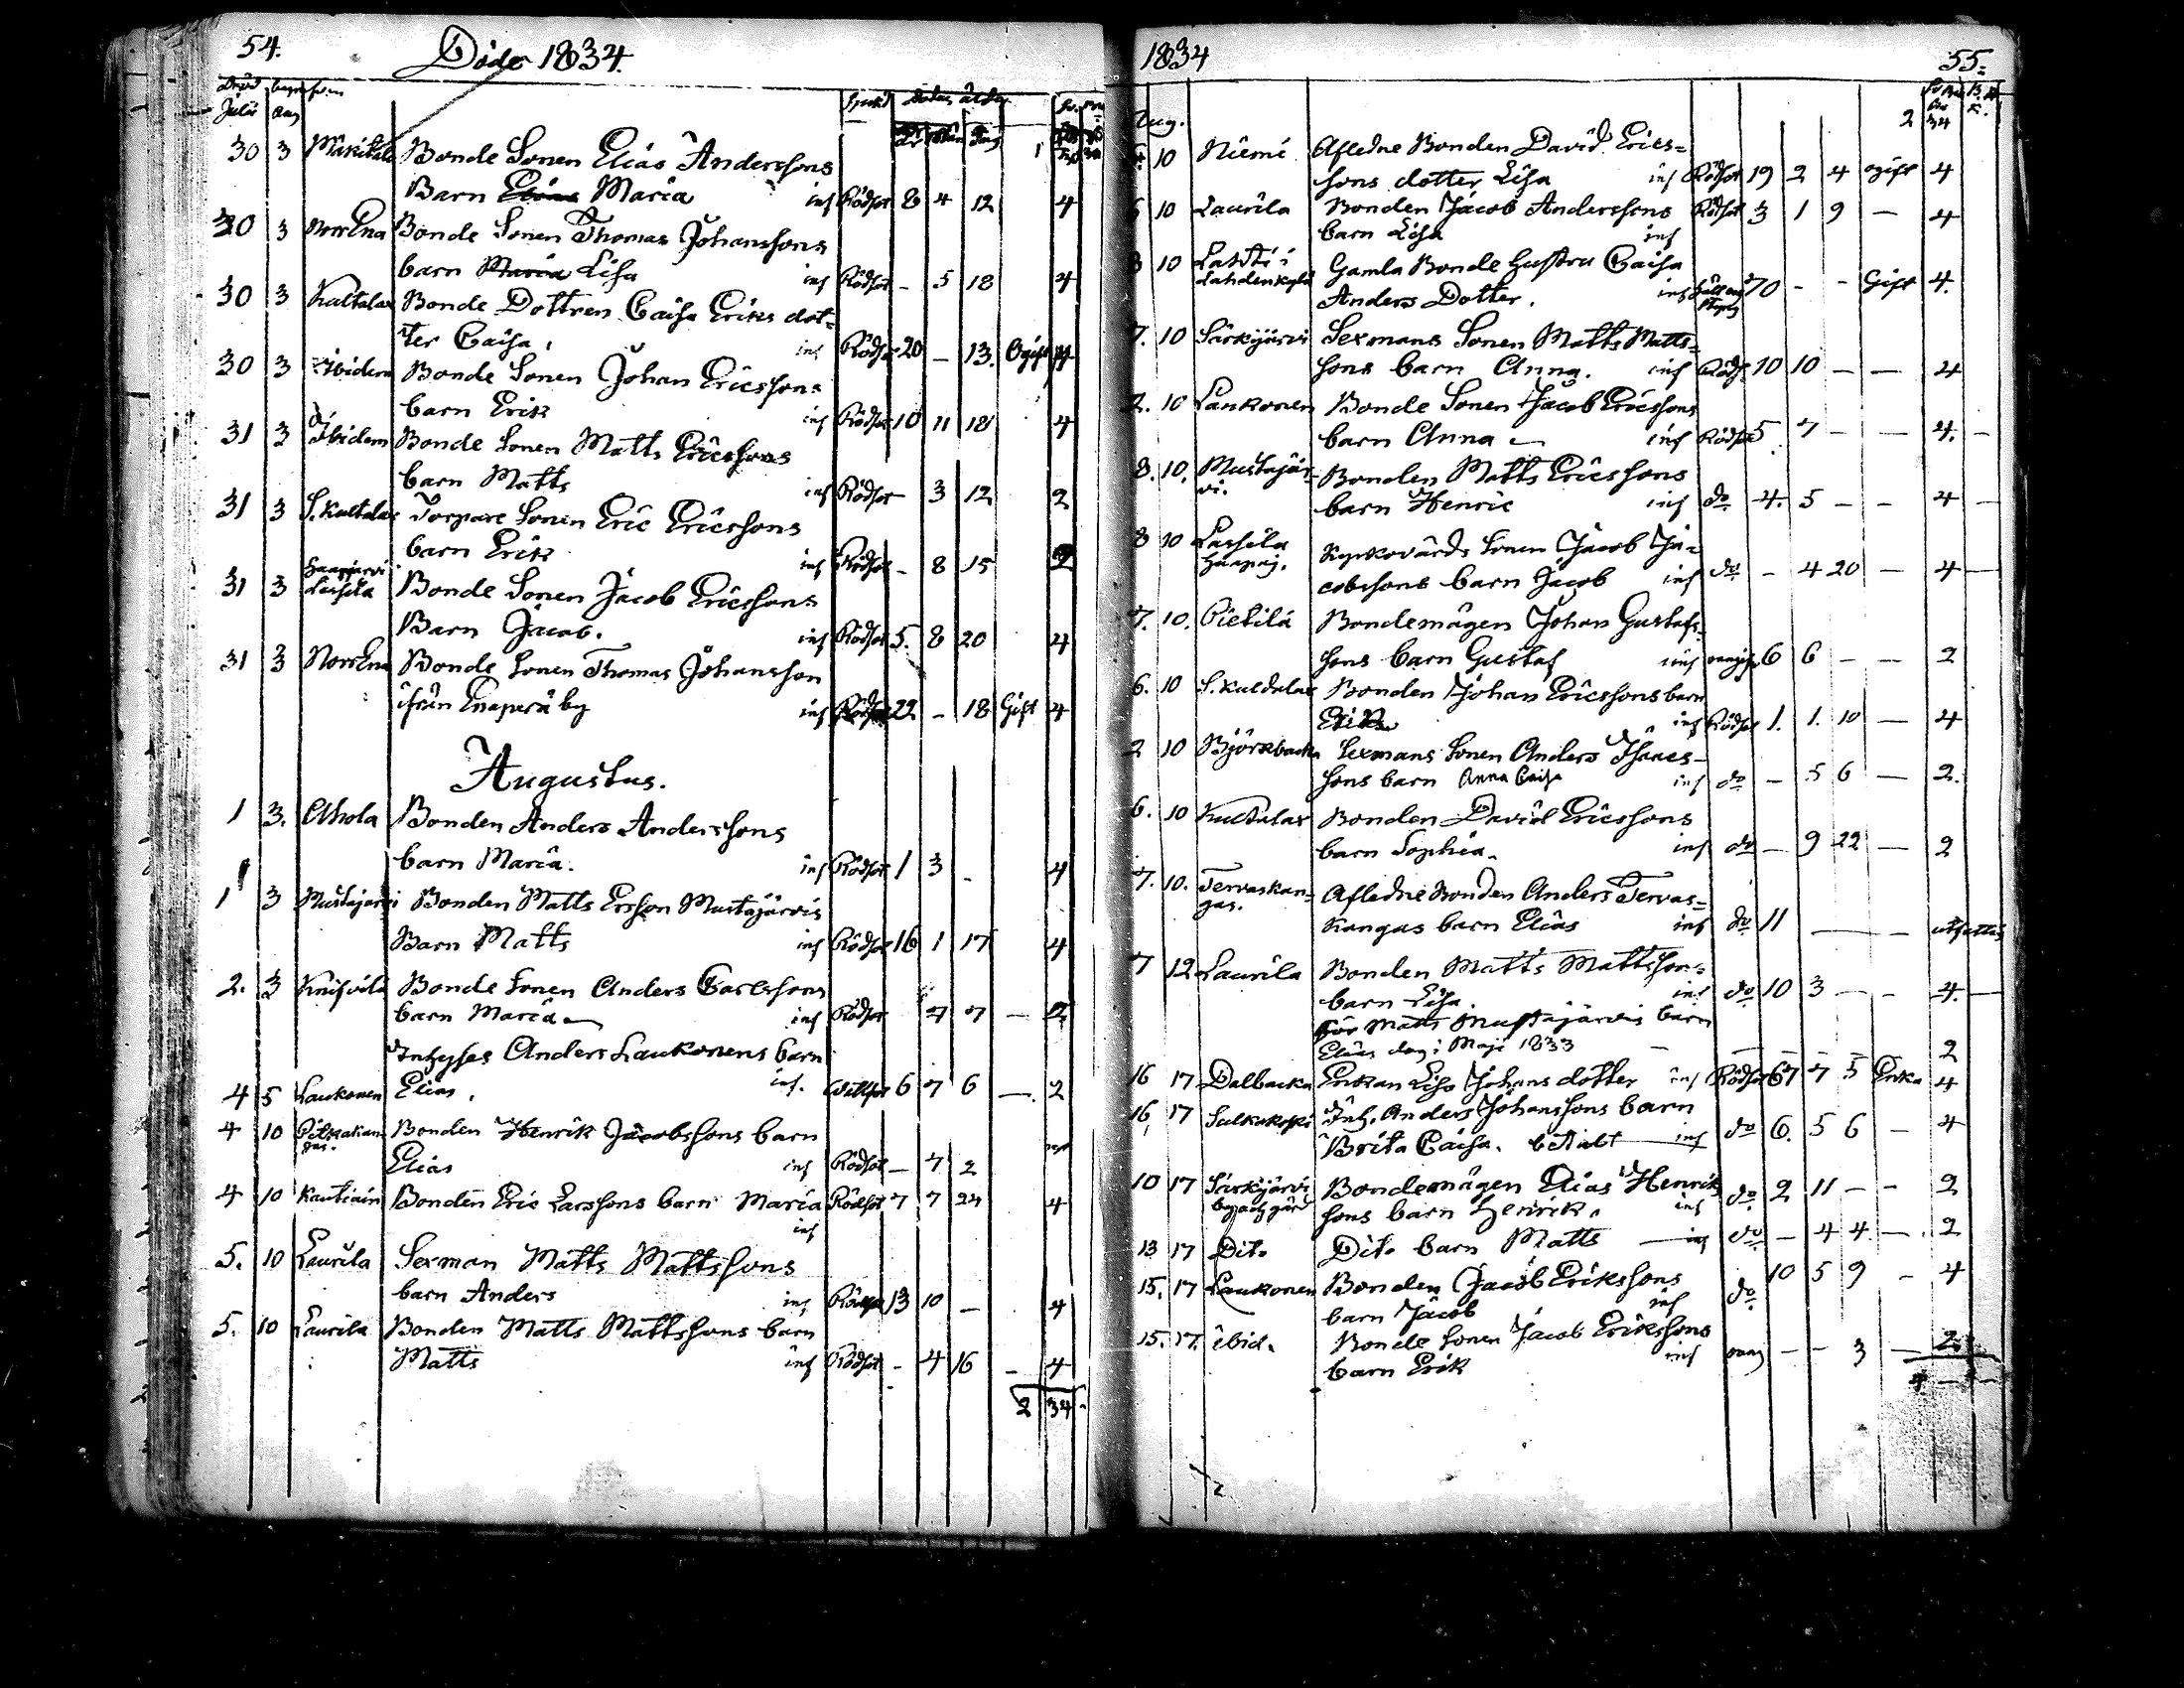 54. Döde 1834.
Juli Aug
30 3 Mäkitalo Bonde Sonen Elias Anderssons
Barn Elias Maria inf Rödsot 8 4 12 4
30 3 NorrEna Bonde Sonen Thomas Johanssons
barn Maria Lisa inf Rödsot - 5 18 4
30 3 Kaltalax Bonde Dottren Caisa Eriks dot-
ter Caisa, inf Rödsot 20 - 13. Ogift 4
30 3 Ibidem Bonde Sonen Johan Ericssons
barn Erik inf Rödsot 10 11 18 4
31 3 Ibidem Bonde Sonen Matts Ericssons
barn Matts inf Rödsot 3 12 2
31 3 S. Kaltalax Torpare Sonen Eric Ericssons
barn Erik inf Rödsot - 8 15 2
31 3 Haapajärvi
Lassila Bonde Sonen Jacob Ericssons
Barn Jacob. inf Rödsot 5. 8 20 4
31 3 NorrEna Bonde Sonen Thomas Johansson
ifrån Enaperä by inf Rödsot 22 - 18 Gift 4
Augustus.
1 3. Ahola Bonden Anders Anderssons
barn Maria. inf Rödsot 1 3 - 4
1 3 Mustajärvi Bonden Matts Ersson Mustajärvis
Barn Matts inf Rödsot 16 1 17 4
2. 3 Knifvilä Bonde Sonen Anders Carlssons
barn Maria inf Rödsot 7 7 - 2
Inhyses Anders Laukonens barn
4 5 Laukonen Elias, inf. 6 7 6 - 2
4 10 Pitkäkan-
gas. Bonden Henrik Jacobssons barn
Elias inf Rödsot - 7 2
4 10 Kautiain Bonden Eric Larssons barn Maria Rödsot 7 7 24 4
inf
5. 10 Laurila Sexman Matts Mattssons
barn Anders inf Rödsot 13 10 - 4
5. 10 Laurila Bonden Matts Mattssons barn
Matts inf Rödsot - 4 16 - 4
2 34
1834 55.
Aug. 2 34
6. 10 Niemi Afledne Bonden David Erics-
sons dotter Lisa inf Rödsot 19 2 4 ogift 4
6 10 Laurila Bonden Jacob Anderssons Rödsot 3 1 9 - 4
barn Lisa inf
8 10 Lahti i
Lahdenkylä Gamla Bonde hustru Caisa
Anders Dotter. inf 70 - - Gift 4.
7. 10 Särkijärvi Sexmans Sonen Matts Matts-
sons barn Anna. inf Röds. 10 10 - - 4
2. 10 Laukonen Bonde Sonen Jacob Ericssons
barn Anna inf Rödsot 5. 7 - - 4. -
8. 10. Mustajär-
vi. Bonden Matts Ericssons
barn Henric inf do 4. 5 - - 4 -
8 10 Lassila
Haapaj. Kyrkovärds Sonen Jacob Ja-
cobssons barn Jacob inf do - 4 20 - 4 -
7. 10. Pietilä Bondemågen Johan Gustafs-
sons barn Gustaf inf 6 6 - - 2
6. 10 S. Kaldalax Bonden Johan Ericssons barn
Erik inf Rödsot 1. 1. 10 - 4
2 10 Björkbacka Sexmans Sonen Anders
sons barn Anna Caisa inf do - 5 6 - 2.
6. 10 Kaltalax Bonden David Ericssons
barn Sophia. inf do - 9 22 - 2
7. 10. Tervaskan-
gas. Afledne Bonden Anders Tervas-
kangas barn Elias inf do 11 - -
7 12 Laurila Bonden Matts Mattsson-
barn Lisa. inf do 10 3 - - 4. -
för Matts Mustajärvis barn
Elias dog i Maji 1833 - - - - 2
16 17 Dalbacka Enkan Lisa Johans dotter inf Rödsot 67 7 5 Enka 4
16, 17 Sulkukoski Inh. Anders Johanssons barn
Brita Caisa. betalt inf do 6. 5 6 - 4
10 17 Särkijärvi Bondemågen Elias Henriks
sons barn Henrik. inf do 2 11 - - 2
13 17 Dito Dito barn Matts inf do - 4 4 - 2
15. 17 Laukonen Bonden Jacob Erikssons
barn Jacob inf do 10 5 9 - 4
15. 17. ibid. Bonde Sonen Jacob Erikssons
barn Erik inf - - 3 - 2
4 - -